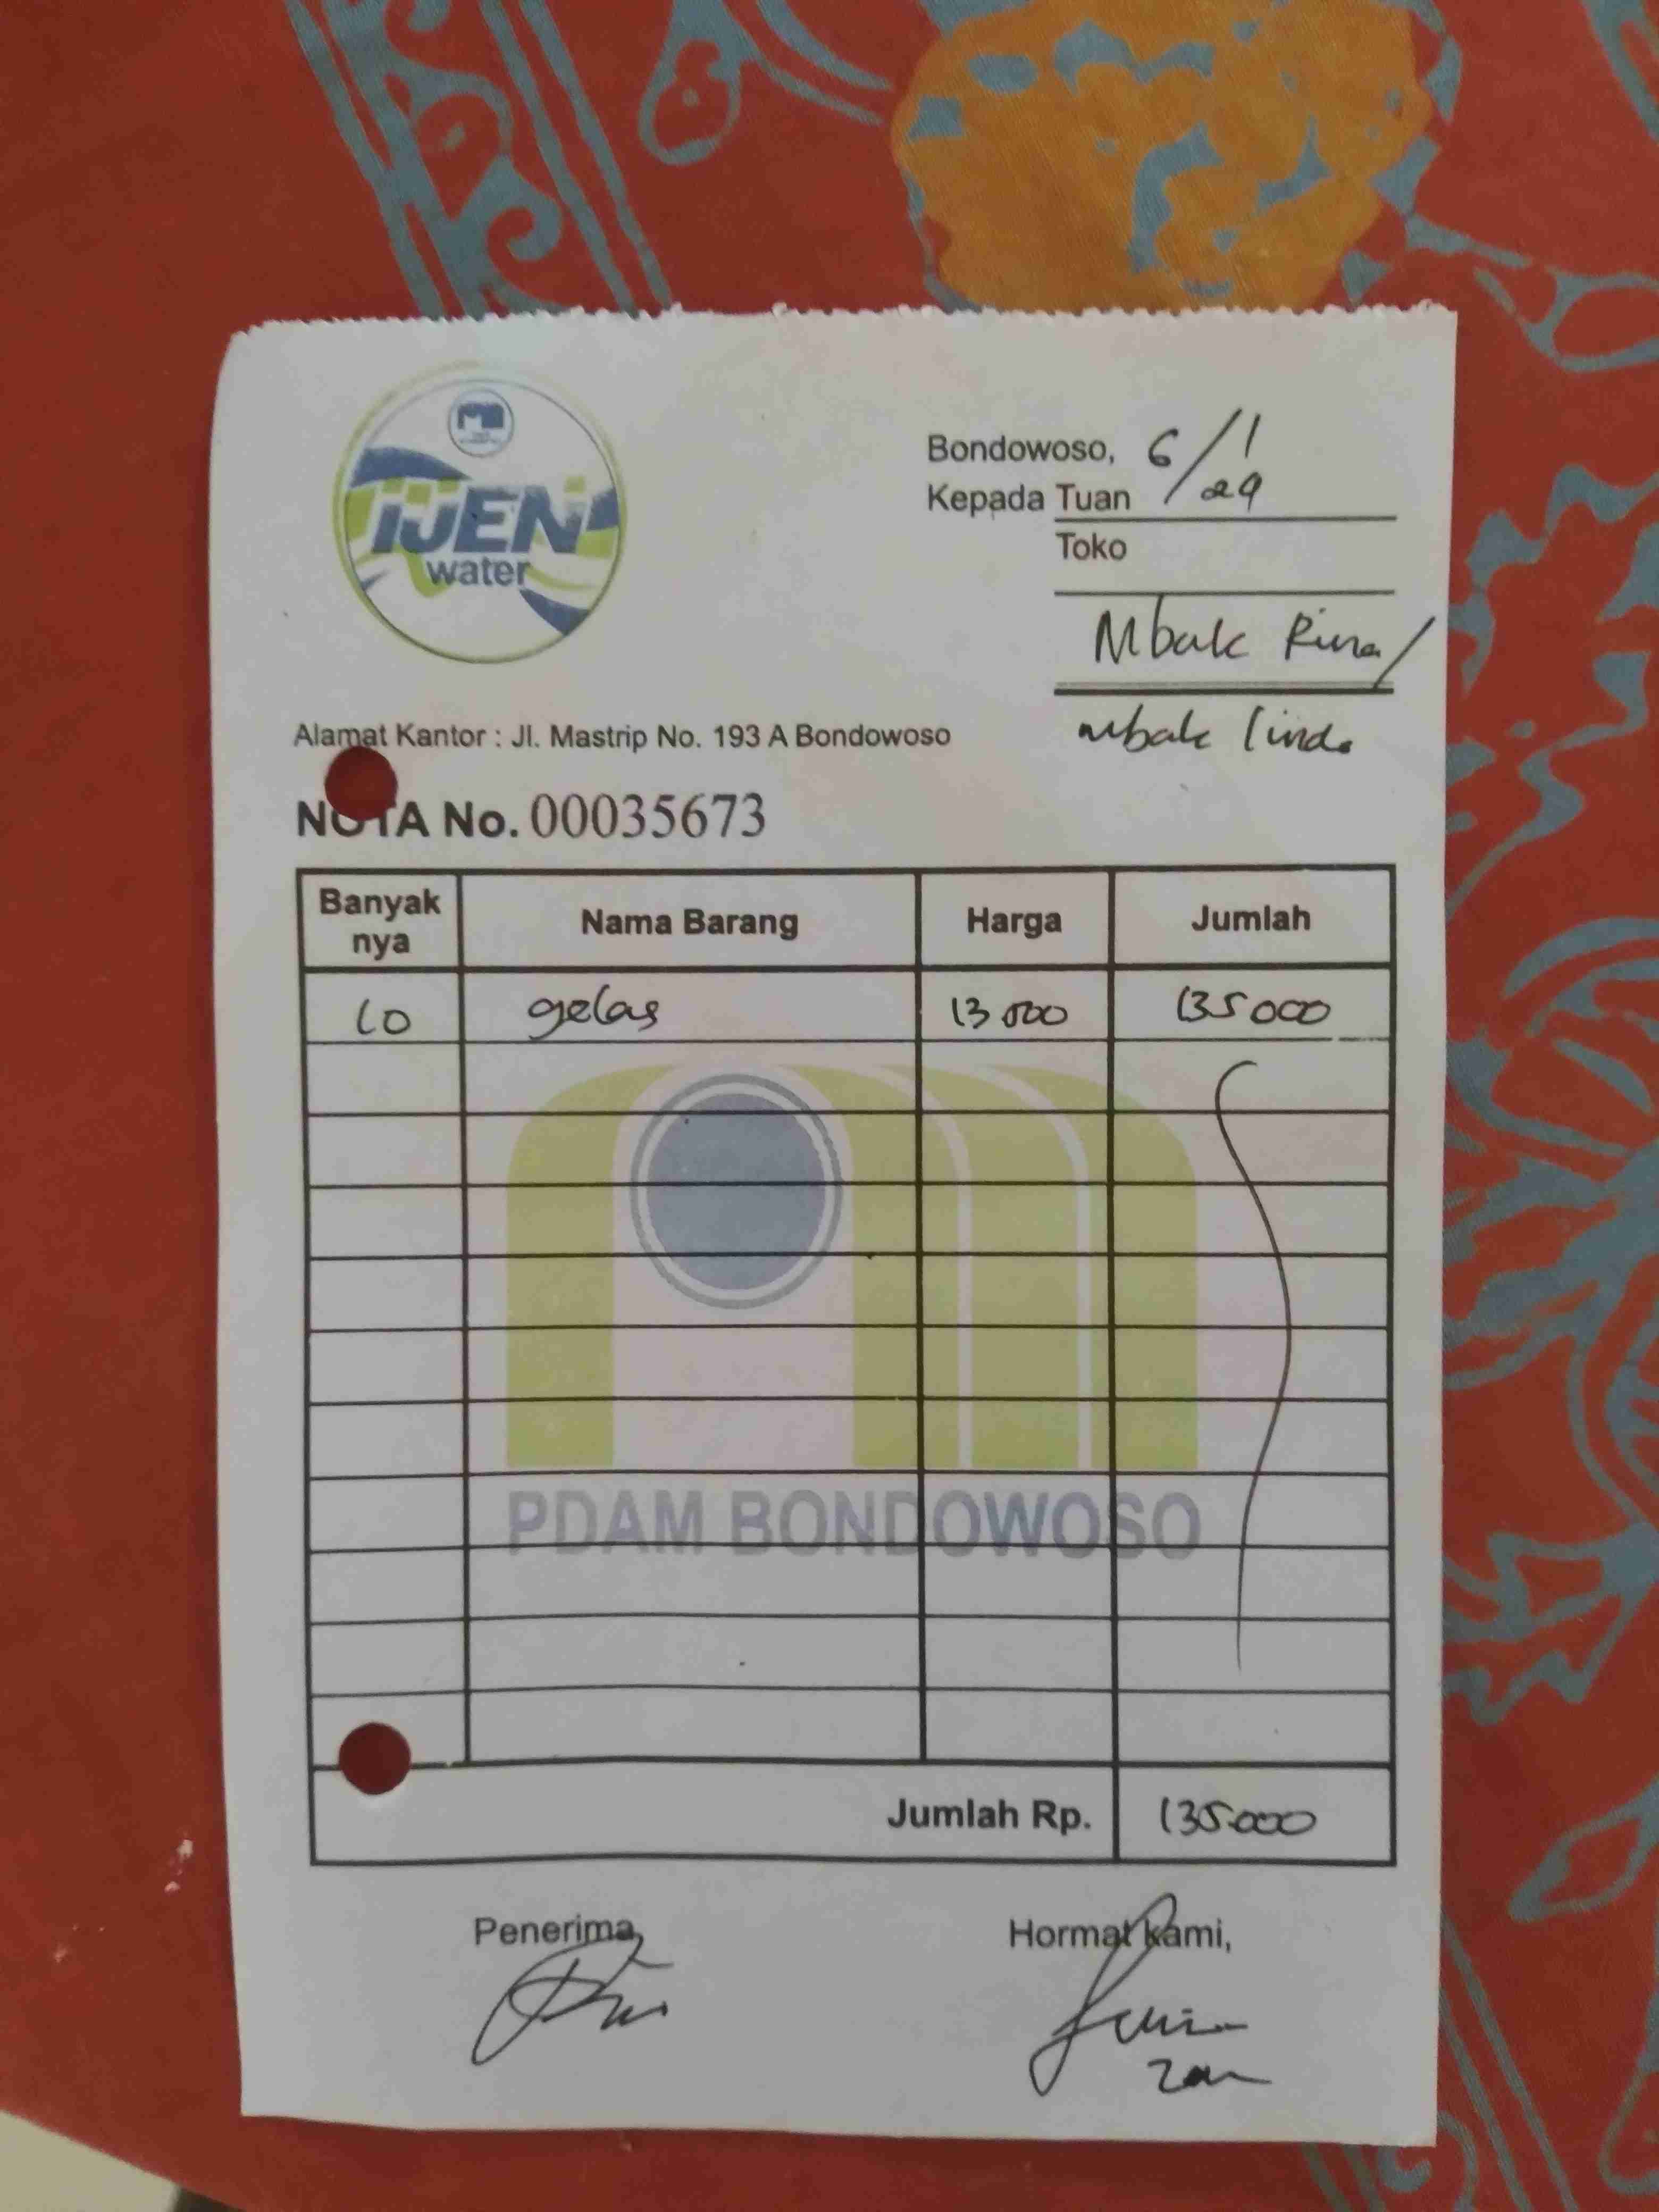 IJEN
water
Bondowoso, 6/1
Kepada Tuan 29
Toko
Mbak Rina/
mbak linda
Alamat Kantor : Jl. Mastrip No. 193 A Bondowoso
NOTA No. 00035673
Banyak nya Nama Barang Harga Jumlah
10 gelas 13.500 135000
PDAM BONDOWOSO
Jumlah Rp. 135.000
Penerima, Hormat kami,